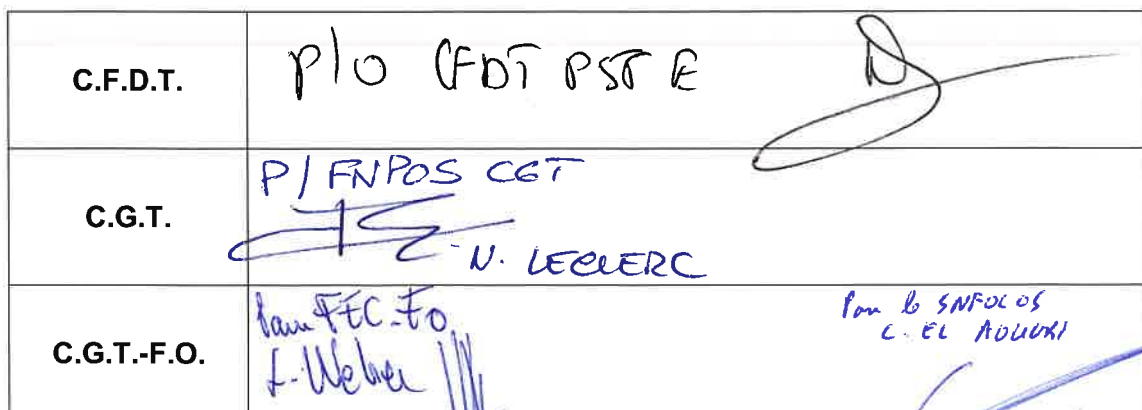 C.F.D.T.
P/O CFDT PSTE
C.G.T.
P/ FNPOS CGT
N. LECLERC
C.G.T.-F.O.
Pour FEC-FO
Pour le SNFOCOS
C. EL